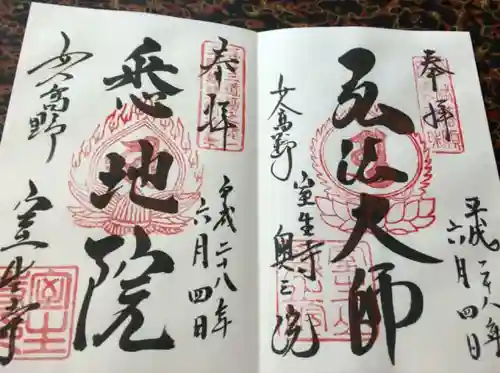 奉拝
弘法大師
女高野
室生寺
奥之院
平成二十八年
六月四日
奉拝
悉地院
女人高野
室生寺
平成二十八年
六月四日
室生